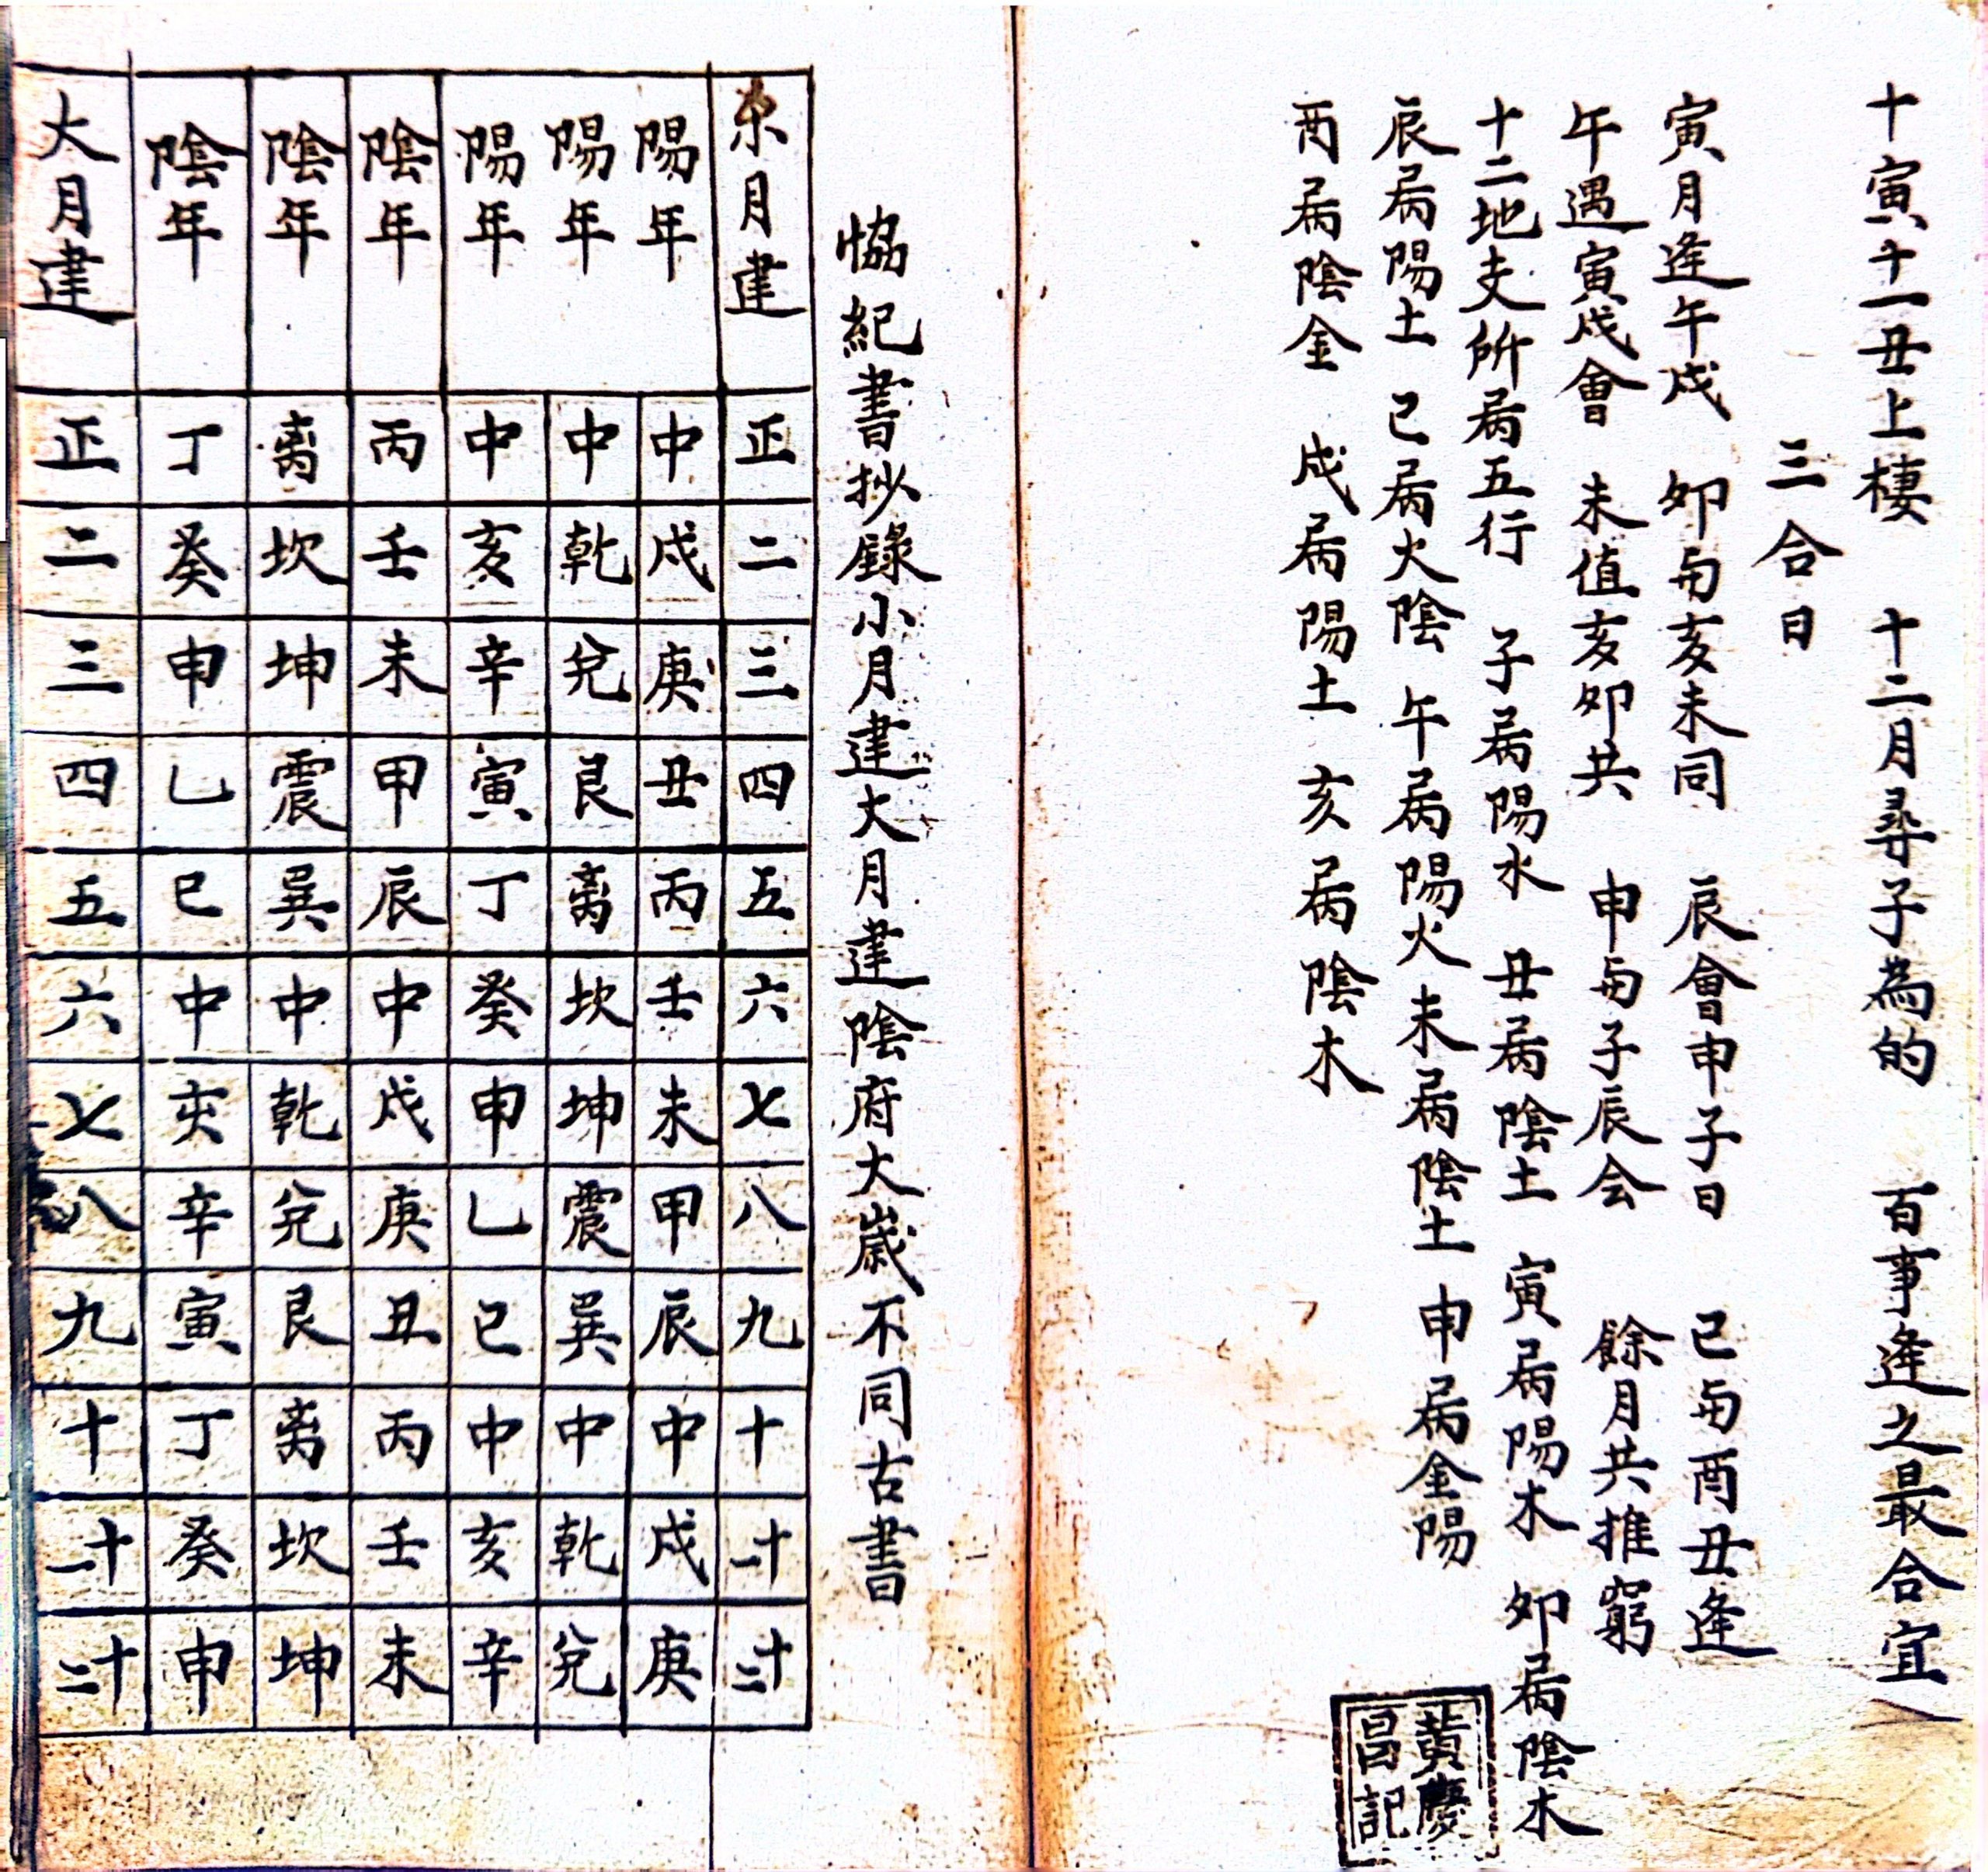 十寅十一丑上棲 十二月尋子為的 百事逢之最合宜
三合日
寅月逢午戍 夘与亥未同 辰會申子日 巳与酉丑逢
午遇寅戍會 未值亥夘共 申与子辰会 餘月共推窮
十二地支所属五行 子属陽水 丑属陰土 寅属陽木 夘属陰木
辰属陽土 巳属火陰 午属陽火 未属陰土 申属金陽
酉属陰金 戍属陽土 亥属陰木
黃慶
昌記
恊紀書抄錄小月建大月建陰府大歲不同古書
月建 正 二 三 四 五 六 七 八 九 十 十一 十二
陽年 中 戍 庚 丑 丙 壬 未 甲 辰 中 戍 庚
陽年 中 乾 兌 艮 离 坎 坤 震 巽 中 乾 兌
陽年 中 亥 辛 寅 丁 癸 申 乙 巳 中 亥 辛
陰年 丙 壬 未 甲 辰 中 戍 庚 丑 丙 壬 未
陰年 离 坎 坤 震 巽 中 乾 兌 艮 离 坎 坤
陰年 丁 癸 申 乙 巳 中 亥 辛 寅 丁 癸 申
大月建 正 二 三 四 五 六 七 八 九 十 十一 十二